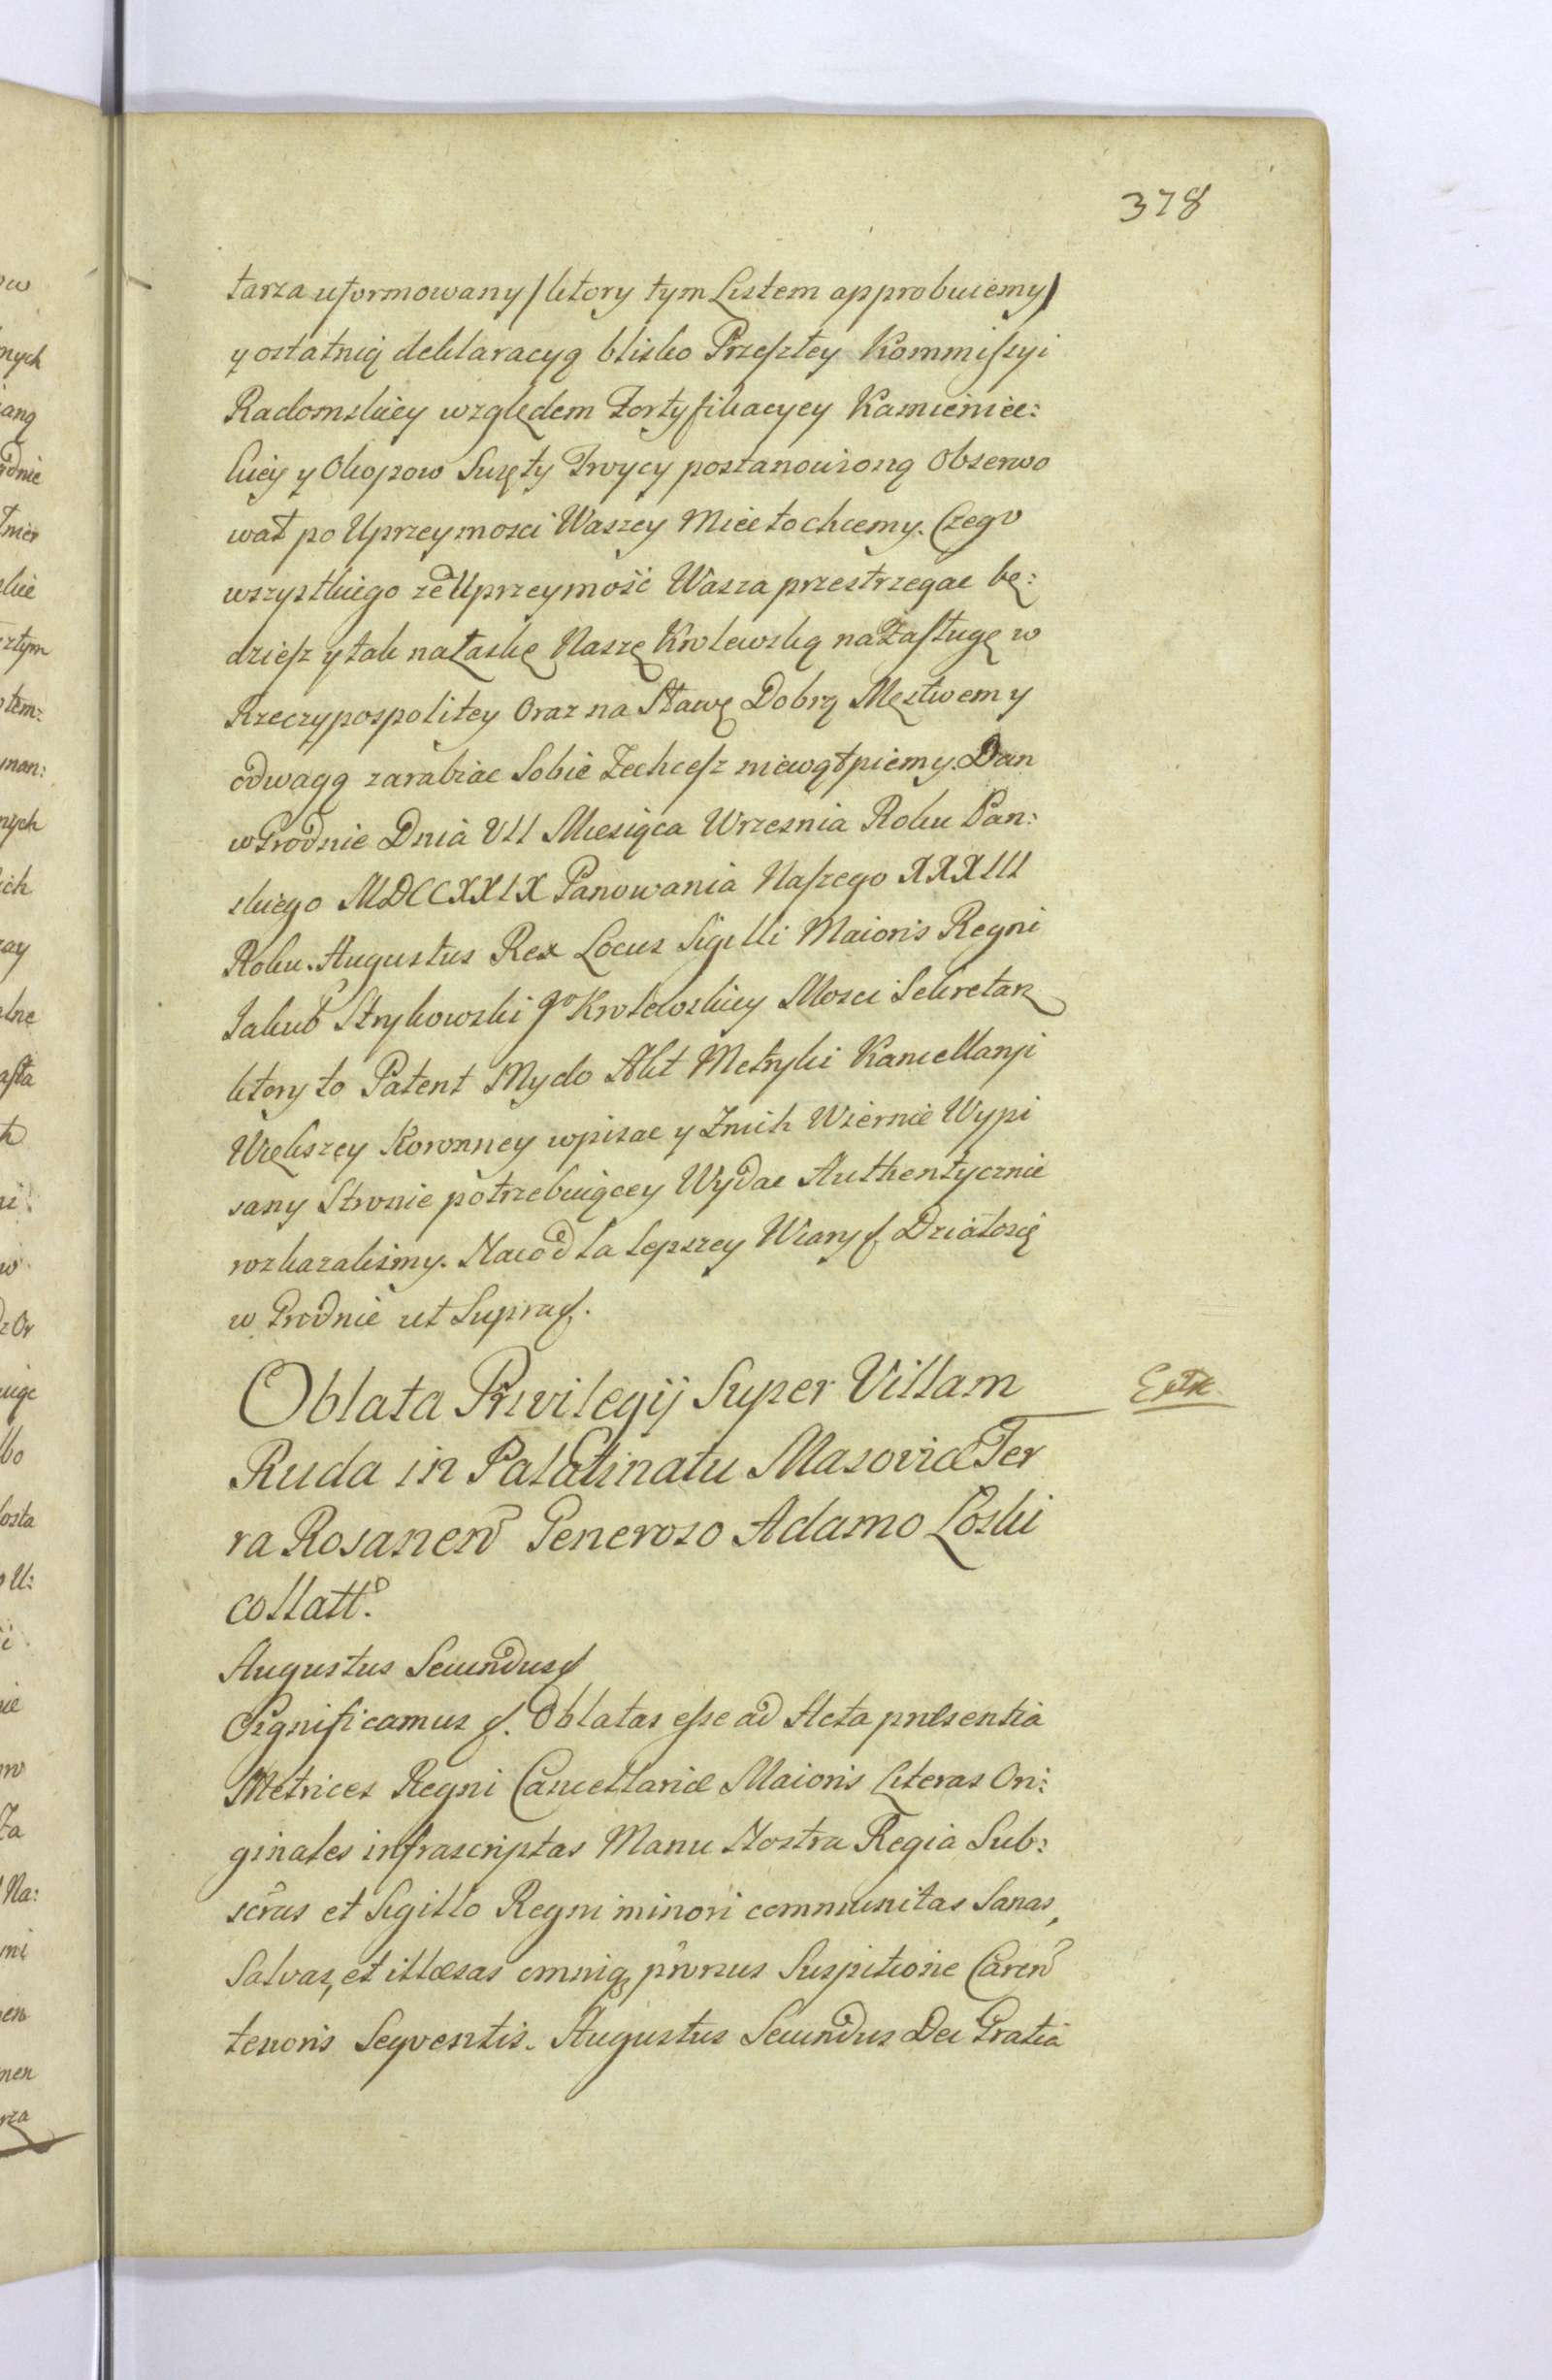 378
tarza uformowany /ktory tym Listem approbuiemy/
y ostatnią deklaracyą blisko Przeszłey Kommissyi
Radomskiey względem Fortyfikacyey Kamieniec:
kiey y Okopow Swięty Troycy postanowioną Obserwo
wał po Uprzeymosci Waszey Miec to chcemy. Czego
wszystkiego że Uprzeymość Wasza przestrzegac bę:
dziesz y tak na Łaskę Naszę Krolewską na Zasługę w
Rzeczypospolitey Oraz na Sławę Dobrą Męstwem y
odwagą zarabiac Sobie Zechcesz niewątpiemy. Dan
w Grodnie Dnia VII Miesiąca Wrzesnia Roku Pan:
skiego MDCCXXIX Panowania Naszego XXXIII
Roku. Augustus Rex Locus Sigilli Maioris Regni
Jakub Strykowski Jgo Krolewskiey Mosci Sekretarz
ktory to Patent My do Akt Metryki Kancellaryi
Większey Koronney wpisac y Znich Wiernie Wypi
sany Stronie potrzebuiącey Wydac Authentycznie
rozkazalismy. Naco dla lepszey Wiary &. Działosię
w Grodnie ut Supra &.
Oblata Privilegij Super Villam
Extr.
Ruda in Palatinatu Masoviæ Ter
ra Rosanen Generoso Adamo Łoski
collatt.
Augustus Secundus &
Significamus &. Oblatas esse ad Acta præsentia
Metrices Regni Cancellariæ Maioris Literas Ori:
ginales infrascriptas Manu Nostra Regia Sub:
scras et Sigillo Regni minori communitas Sanas,
Salvas, et illæsas omniq prorsus Suspitione Caren
tenoris Seqventis. Augustus Secundus Dei Gratia